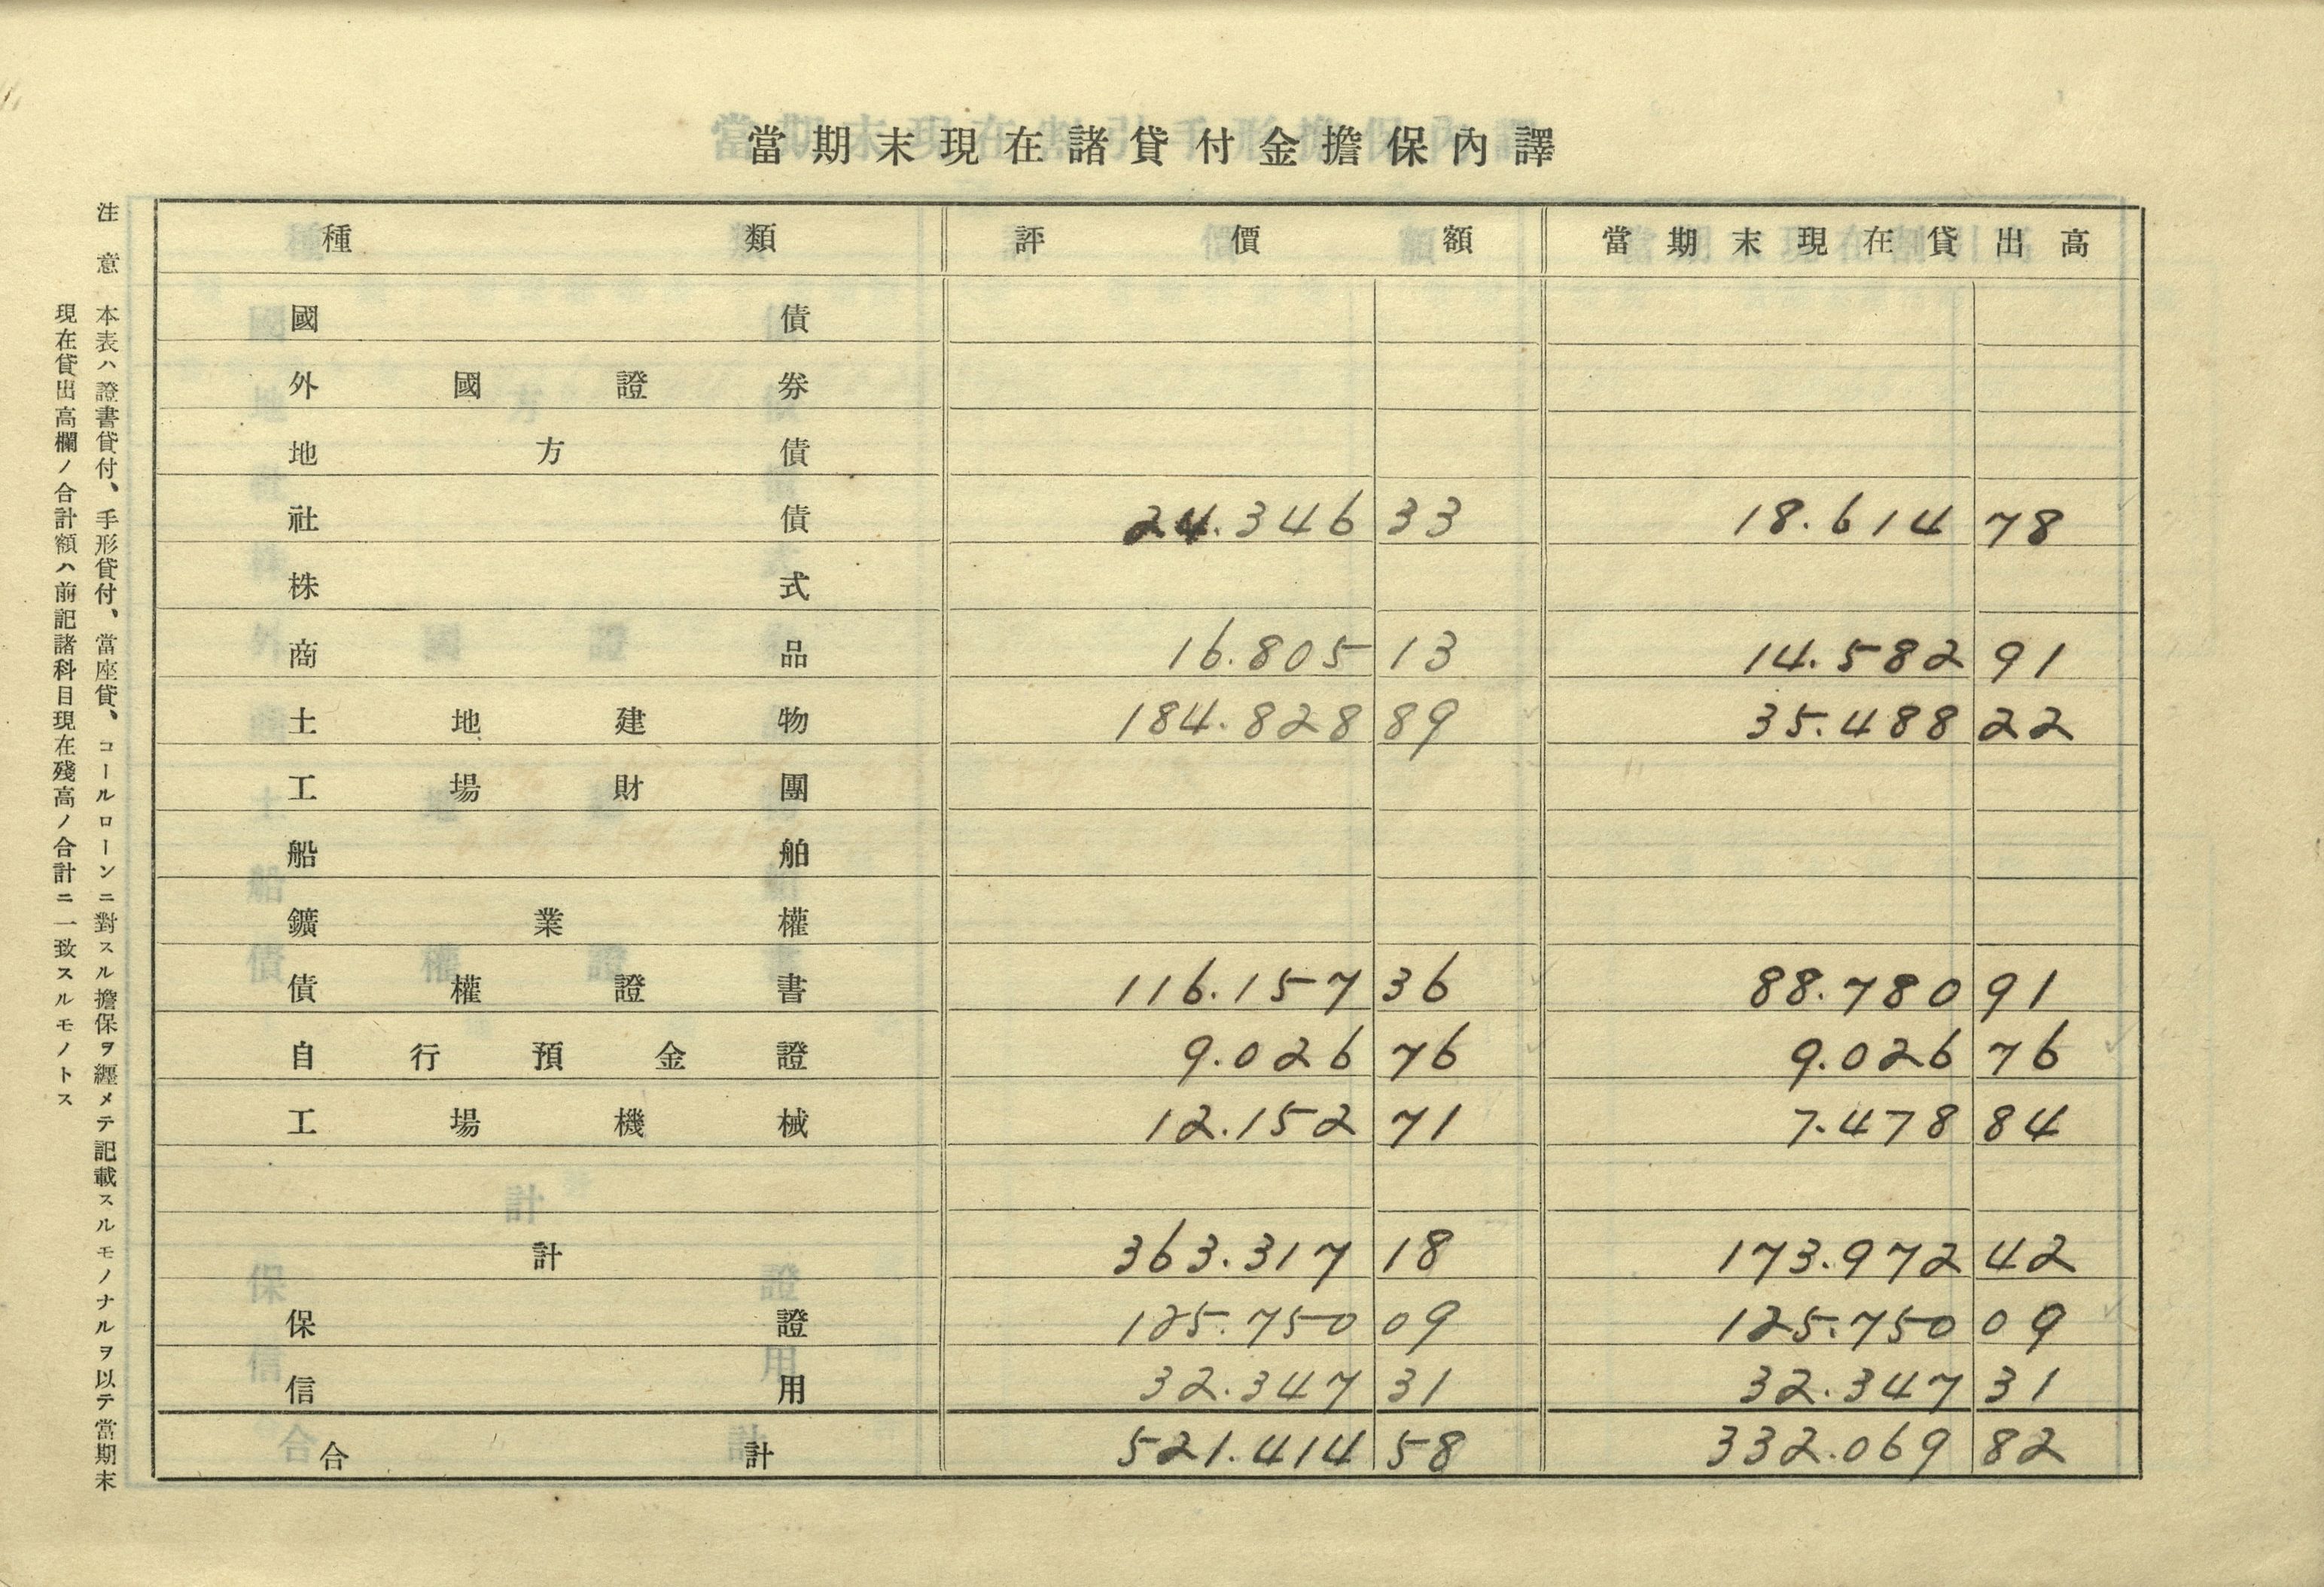 當期末現在諸貸付金擔保內譯
種類 評價額 當期末現在貸出高
國債
外國證券
地方債
社債 24.346 33 18.614 78
株式
商品 16.805 13 14.582 91
土地建物 184.828 89 35.488 22
工場財團
船舶
鑛業權
債權證書 116.157 36 88.780 91
自行預金證 9.026 76 9.026 76
工場機械 12.152 71 7.478 84
計 363.317 18 173.972 42
保證 125.750 09 125.750 09
信用 32.347 31 32.347 31
合計 521.414 58 332.069 82
注意 本表ハ證書貸付、手形貸付、當座貸、コールローンニ對スル擔保ヲ纒メテ記載スルモノナルヲ以テ當期末
現在貸出高欄ノ合計額ハ前記諸科目現在殘高ノ合計ニ一致スルモノトス